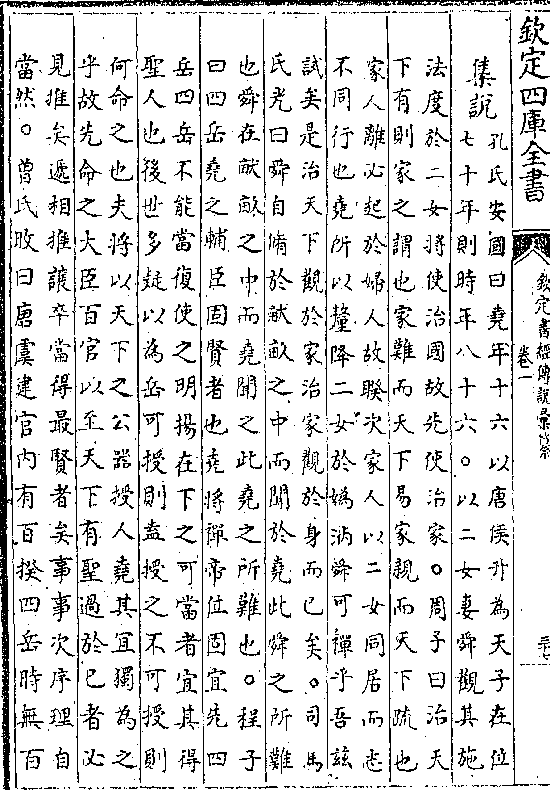 欽定四庫全書
欽定書經傳說彙纂
卷一
集說
孔氏安國曰堯年十六以唐侯升為天子在位
七十年則時年八十六○以二女妻舜觀其施
法度於二女將使治國故先使治家○周子曰治天
下有則家之謂也家難而天下易家親而天下疏也
家人離必起於婦人故睽次家人以二女同居而志
不同行也堯所以釐降二女於嬀汭舜可禪乎吾茲
試矣是治天下觀於家治家觀於身而已矣○司馬
氏光曰舜自脩於畎畝之中而聞於堯此舜之所難
也舜在畎畝之中而堯聞之此堯之所難也○程子
曰四岳堯之輔臣固賢者也堯將禪帝位固宜先四
岳四岳不能當復使之明揚在下之可當者宜其得
聖人也後世多疑以為岳可授則盍授之不可授則
何命之也夫將以天下之公器授人堯其宜獨為之
乎故先命之大臣百官以至天下有聖過於已者必
見推矣遞相推讓卒當得最賢者矣事事次序理自
當然○曾氏旼曰唐虞建官內有百揆四岳時無百